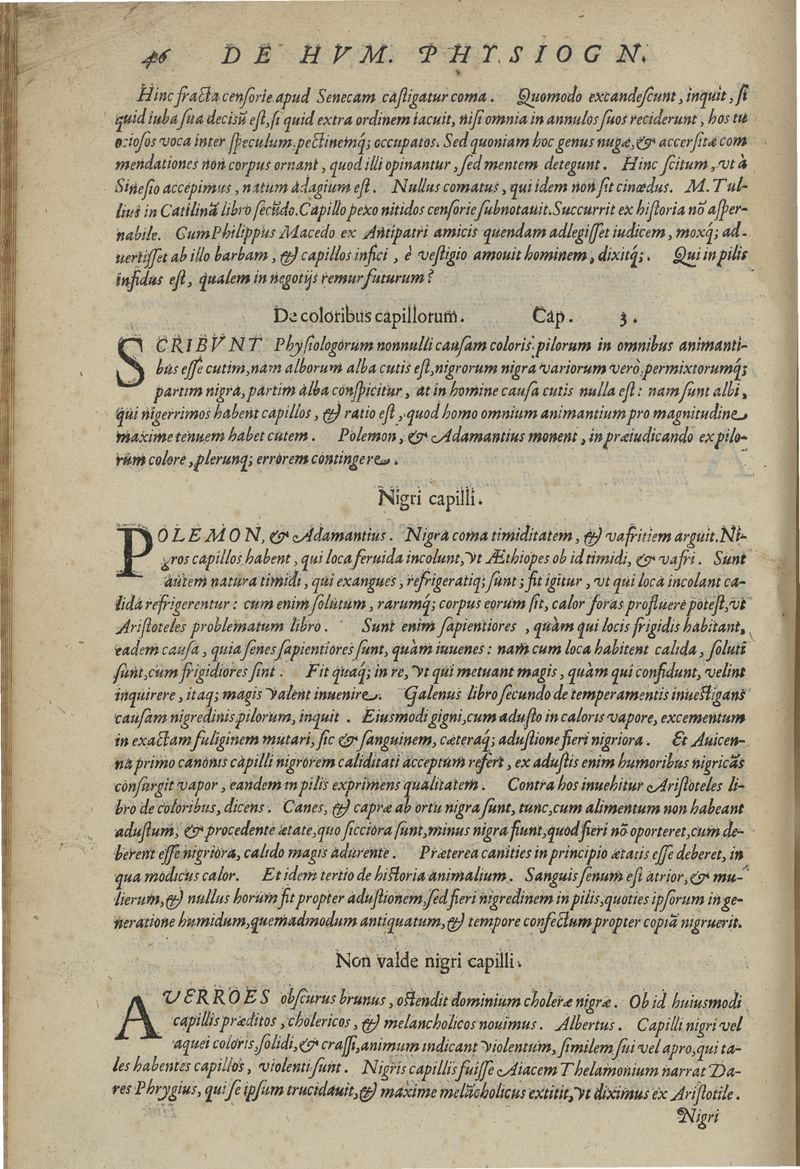 46 DE HVM. PHYSIOGN.
Hinc fracta censorie apud Senecam castigatur coma. Quomodo excandescunt, inquit, si
quid iuba sua decisũ est, si quid extra ordinem iacuit, nisi omnia in annulos suos reciderunt, hos tu
ociosos voca inter speculum pectinemq; occupatos. Sed quoniam hoc genus nugæ, & accersitæ com
mendationes non corpus ornant, quod illi opinantur, sed mentem detegunt. Hinc scitum, vt à
Sinesio accepimus, natum adagium est. Nullus comatus, qui idem non sit cinædus. M. Tul-
lius in Catilinã libro secũdo. Capillo pexo nitidos censorie subnotauit. Succurrit ex historia nõ asper-
nabile. Cum Philippus Macedo ex Antipatri amicis quendam adlegisset iudicem, moxq; ad-
uertisset ab illo barbam, & capillos infici, è vestigio amouit hominem, dixitq;. Qui in pilis
infidus est, qualem in negotijs remur futurum?
De coloribus capillorum. Cap. 3.
SCRIBVNT Physiologorum nonnulli causam coloris pilorum in omnibus animanti-
bus esse cutim, nam alborum alba cutis est, nigrorum nigra variorum verò permixtorumq;
partim nigra, partim alba conspicitur, at in homine causa cutis nulla est: nam sunt albi,
qui nigerrimos habent capillos, & ratio est, quod homo omnium animantium pro magnitudine
maxime tenuem habet cutem. Polemon, & Adamantius monent, in præiudicando ex pilo-
rum colore, plerunq; errorem contingere.
Nigri capilli.
POLEMON, & Adamantius. Nigra coma timiditatem, & vafritiem arguit. Ni-
gros capillos habent, qui loca feruida incolunt, vt Æthiopes ob id timidi, & vafri. Sunt
autem natura timidi, qui exangues, refrigeratiq; sunt; fit igitur, vt qui loca incolant ca-
lida refrigerentur: cum enim solutum, rarumq; corpus eorum sit, calor foras profluere potest, vt
Aristoteles problematum libro. Sunt enim sapientiores, quàm qui locis frigidis habitant,
eadem causa, quia senes sapientiores sunt, quàm iuuenes: nam cum loca habitent calida, soluti
sunt, cum frigidiores sint. Fit quaq; in re, vt qui metuant magis, quàm qui confidunt, velint
inquirere, itaq; magis valent inuenire. Galenus libro secundo de temperamentis inuestigans
causam nigredinis pilorum, inquit. Eiusmodi gigni, cum adusto in caloris vapore, excementum
in exactam fuliginem mutari, sic & sanguinem, cæteraq; adustione fieri nigriora. Et Auicen-
na primo canonis capilli nigrorem caliditati acceptum refert, ex adustis enim humoribus nigricãs
consurgit vapor, eandem in pilis exprimens qualitatem. Contra hos inuehitur Aristoteles li-
bro de coloribus, dicens. Canes, & capræ ab ortu nigra sunt, tunc, cum alimentum non habeant
adustum, & procedente ætate, quo sicciora sunt, minus nigra fiunt, quod fieri nõ oporteret, cum de-
berent esse nigriora, calido magis adurente. Præterea canities in principio ætatis esse deberet, in
qua modicus calor. Et idem tertio de historia animalium. Sanguis senum est atrior, & mu-
lierum, & nullus horum fit propter adustionem, sed fieri nigredinem in pilis, quoties ipsorum in ge-
neratione humidum, quemadmodum antiquatum, & tempore confectum propter copiã nigruerit.
Non valde nigri capilli.
AVERROES obscurus brunus, ostendit dominium choleræ nigræ. Ob id huiusmodi
capillis præditos, cholericos, & melancholicos nouimus. Albertus. Capilli nigri vel
aquei coloris, solidi, & crassi, animum indicant violentum, similem sui vel apro, qui ta-
les habentes capillos, violenti sunt. Nigris capillis fuisse Aiacem Thelamonium narrat Da-
res Phrygius, qui se ipsum trucidauit, & maxime melãcholicus extitit, vt diximus ex Aristotile.
Nigri